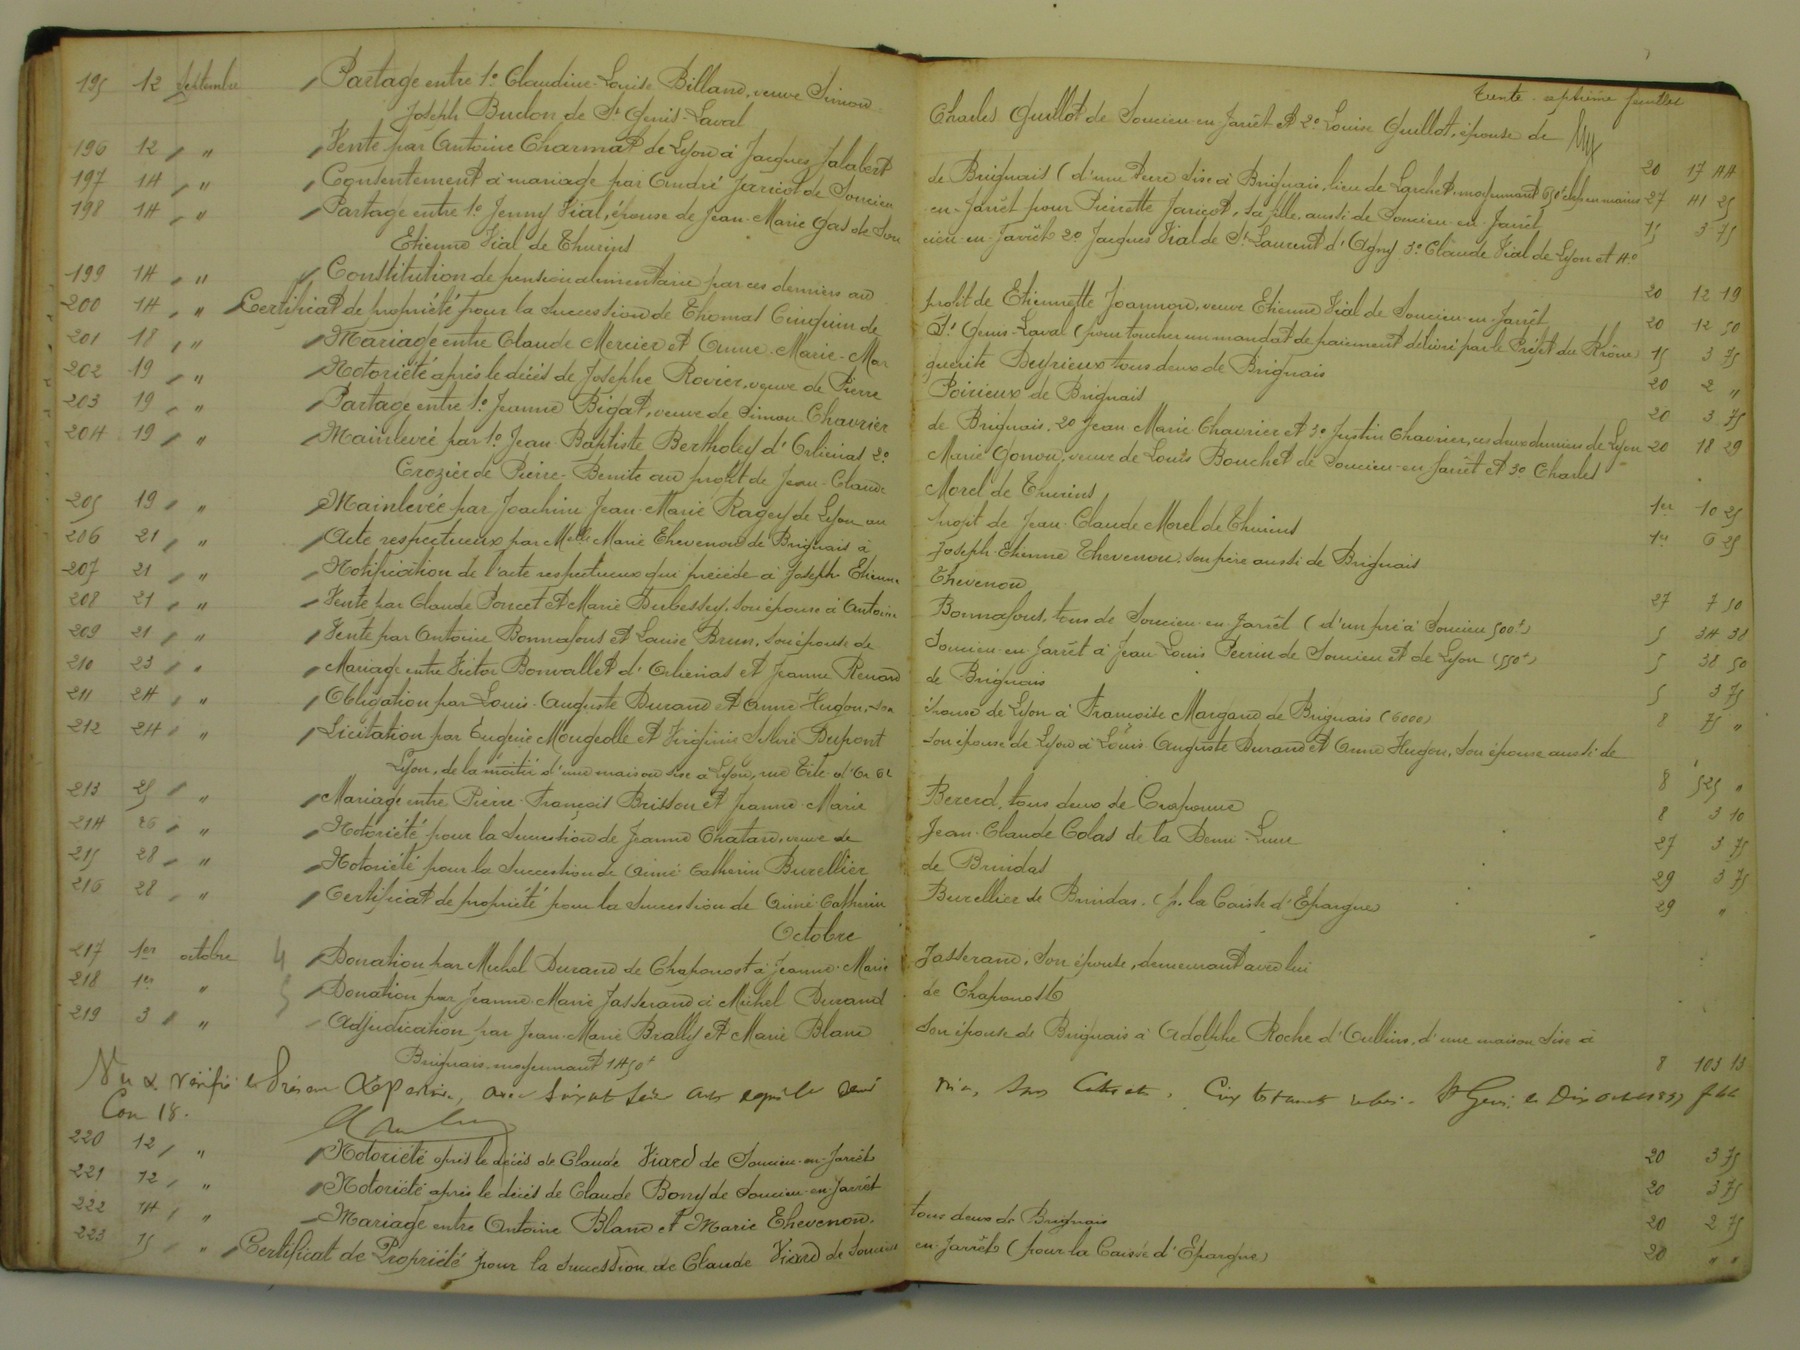 Trente-septième feuillet
195 12 septembre Partage entre 1º Claudine-Louise Billand, veuve Simon Charles Guillot de Soucieu-en-Jarrêt et 2º Louise Guillot, épouse de
Joseph Budon de St Genis-Laval 20 17 44
196 12 " Vente par Antoine Charmat de Lyon à Jacques Jalabert de Brignais (d'une terre sise à Brignais, lieu de Larchet, moyennant 27 41 25
197 14 " Consentement à mariage par André Jaricot de Soucieu en-Jarrêt pour Pierrette Jaricot, sa fille aussi de Soucieu-en-Jarrêt 15 3 75
198 14 " Partage entre 1º Jenny Vial, épouse de Jean-Marie Gas de Sou cieu-en-Jarrêt 2º Jacques Vial de St Laurent d'Agny 3º Claude Vial de Lyon et 4º
Etienne Vial de Thurins 20 12 19
199 14 " Constitution de pension alimentaire par ces derniers au profit de Etiennette Joannon, veuve Etienne Vial de Soucieu-en-Jarrêt 20 12 50
200 14 " Certificat de propriété pour la succession de Thomas Cinquin de St Genis-Laval (pour toucher un mandat de paiement délivré par le Préfet du Rhône) 15 3 75
201 18 " Mariage entre Claude Mercier et Anne-Marie-Mar guerite Deyrieux tous deux de Brignais 20 2 "
202 19 " Notoriété après le décès de Josephe Rovier, veuve de Pierre Poirieux de Brignais 20 3 75
203 19 " Partage entre 1º Jeanne Bigat, veuve de Simon Chavrier de Brignais, 2º Jean-Marie Chavrier et 3º Justin Chavrier, ces deux derniers de Lyon 20 18 29
204 19 " Mainlevée par 1º Jean-Baptiste Bertholey d'Orliénas 2º Marie Gonon, veuve de Louis Bouchet de Soucieu-en-Jarrêt et 3º Charles
Crozier de Pierre-Bénite au profit de Jean-Claude Morel de Thurins 1er 10 25
205 19 " Mainlevée par Joachim Jean-Marie Ragey de Lyon au profit de Jean-Claude Morel de Thurins 1er 6 25
206 21 " Acte respectueux par Melle Marie Thevenon de Brignais à Joseph-Etienne Thevenon, son père aussi de Brignais
207 21 " Notification de l'acte respectueux qui précède à Joseph Etienne Thevenon 27 7 50
208 21 " Vente par Claude Poncet et Marie Dubessy, son épouse à Antoine Bonnafous, tous de Soucieu-en-Jarrêt (d'un pré à Soucieu 500f) 5 34 38
209 21 " Vente par Antoine Bonnafous et Louise Brun, son épouse de Soucieu-en-Jarrêt à Jean Louis Perrin de Soucieu et de Lyon (550f) 5 38 50
210 23 " Mariage entre Victor Bonvallet d'Orliénas et Jeanne Renard de Brignais 5 3 75
211 24 " Obligation par Louis-Auguste Durand et Anne Hugon, son épouse de Lyon à Françoise Margand de Brignais (6000) 8 75 "
212 24 " Licitation par Eugène Mougeolle et Virginie Sylvie Dupont son épouse de Lyon à Louis-Auguste Durand et Anne Hugon, son épouse aussi de
Lyon, de la moitié d'une maison sise à Lyon, rue Tête d'Or 8 525 "
213 25 " Mariage entre Pierre-François Brisson et Jeanne-Marie Bererd, tous deux de Craponne 8 3 10
214 26 " Notoriété pour la succession de Jeanne Chatard, veuve de Jean-Claude Colas de la Demi-Lune 27 3 75
215 28 " Notoriété pour la succession de Aimé Catherin Burellier de Brindas 29 3 75
216 28 " Certificat de propriété pour la succession de Aimé Catherin Burellier de Brindas. (p. la Caisse d'Epargne) 29 "
Octobre
217 1er octobre 4 Donation par Michel Durand de Chaponost à Jeanne-Marie Jasserand, son épouse, demeurant avec lui
218 1er " 5 Donation par Jeanne-Marie Jasserand à Michel Durand de Chaponost
219 3 " Adjudication par Jean-Marie Brally et Marie Blanc son épouse de Brignais à Adolphe Roche d'Oullins, d'une maison sise à
Brignais moyennant 1450f 8 103 13
Vu & vérifié le présent Répertoire, avec
220 12 " Notoriété après le décès de Claude Viard de Soucieu-en-Jarrêt 20 3 75
221 12 " Notoriété après le décès de Claude Bony de Soucieu-en-Jarrêt 20 3 75
222 14 " Mariage entre Antoine Blanc et Marie Thevenon, tous deux de Brignais 20 2 75
223 15 " Certificat de Propriété pour la succession de Claude Viard de Soucieu en-Jarrêt (pour la Caisse d'Epargne) 20 " "